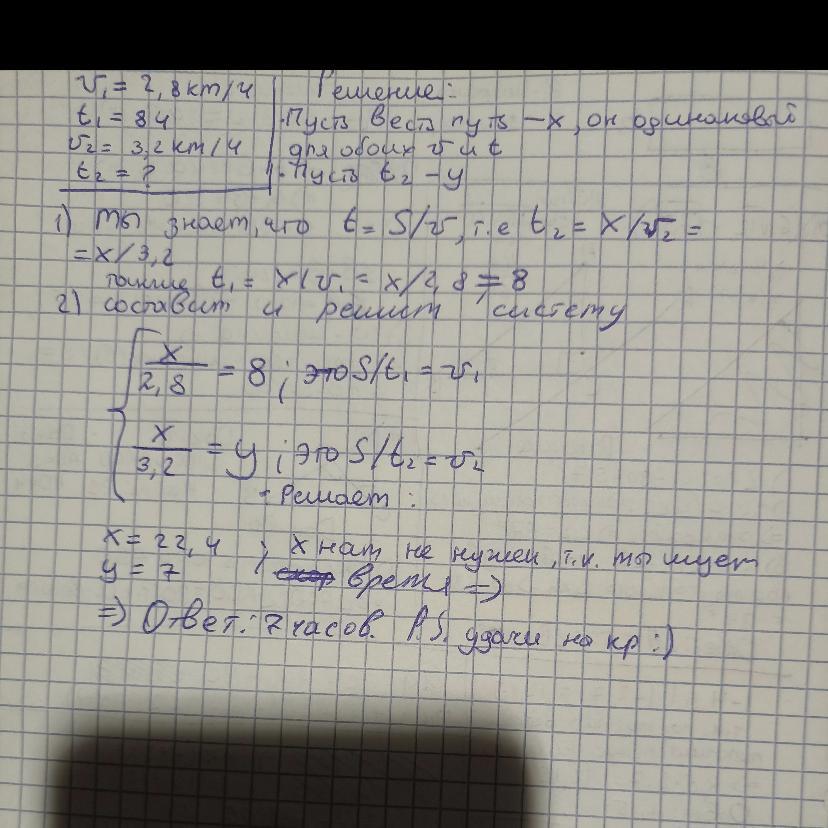 v₁ = 2,8 км/ч
t₁ = 8ч
v₂ = 3,2 км/ч
t₂ = ?
Решение:
·Пусть весть путь – x, он одинаковый
для обоих v и t
·Пусть t₂ – y
1) мы знаем, что t = S/v, т.е t₂ = x/v₂ =
= x/3,2
также t₁ = x/v₁ = x/2,8 = 8
2) составим и решим систему
x/2,8 = 8 ; это S/t₁ = v₁
x/3,2 = y ; это S/t₂ = v₂
- Решаем :
x = 22,4 ; x нам не нужен, т.к. мы ищем
y = 7 время =>
=> Ответ: 7 часов. P.S. удачи на кр :)